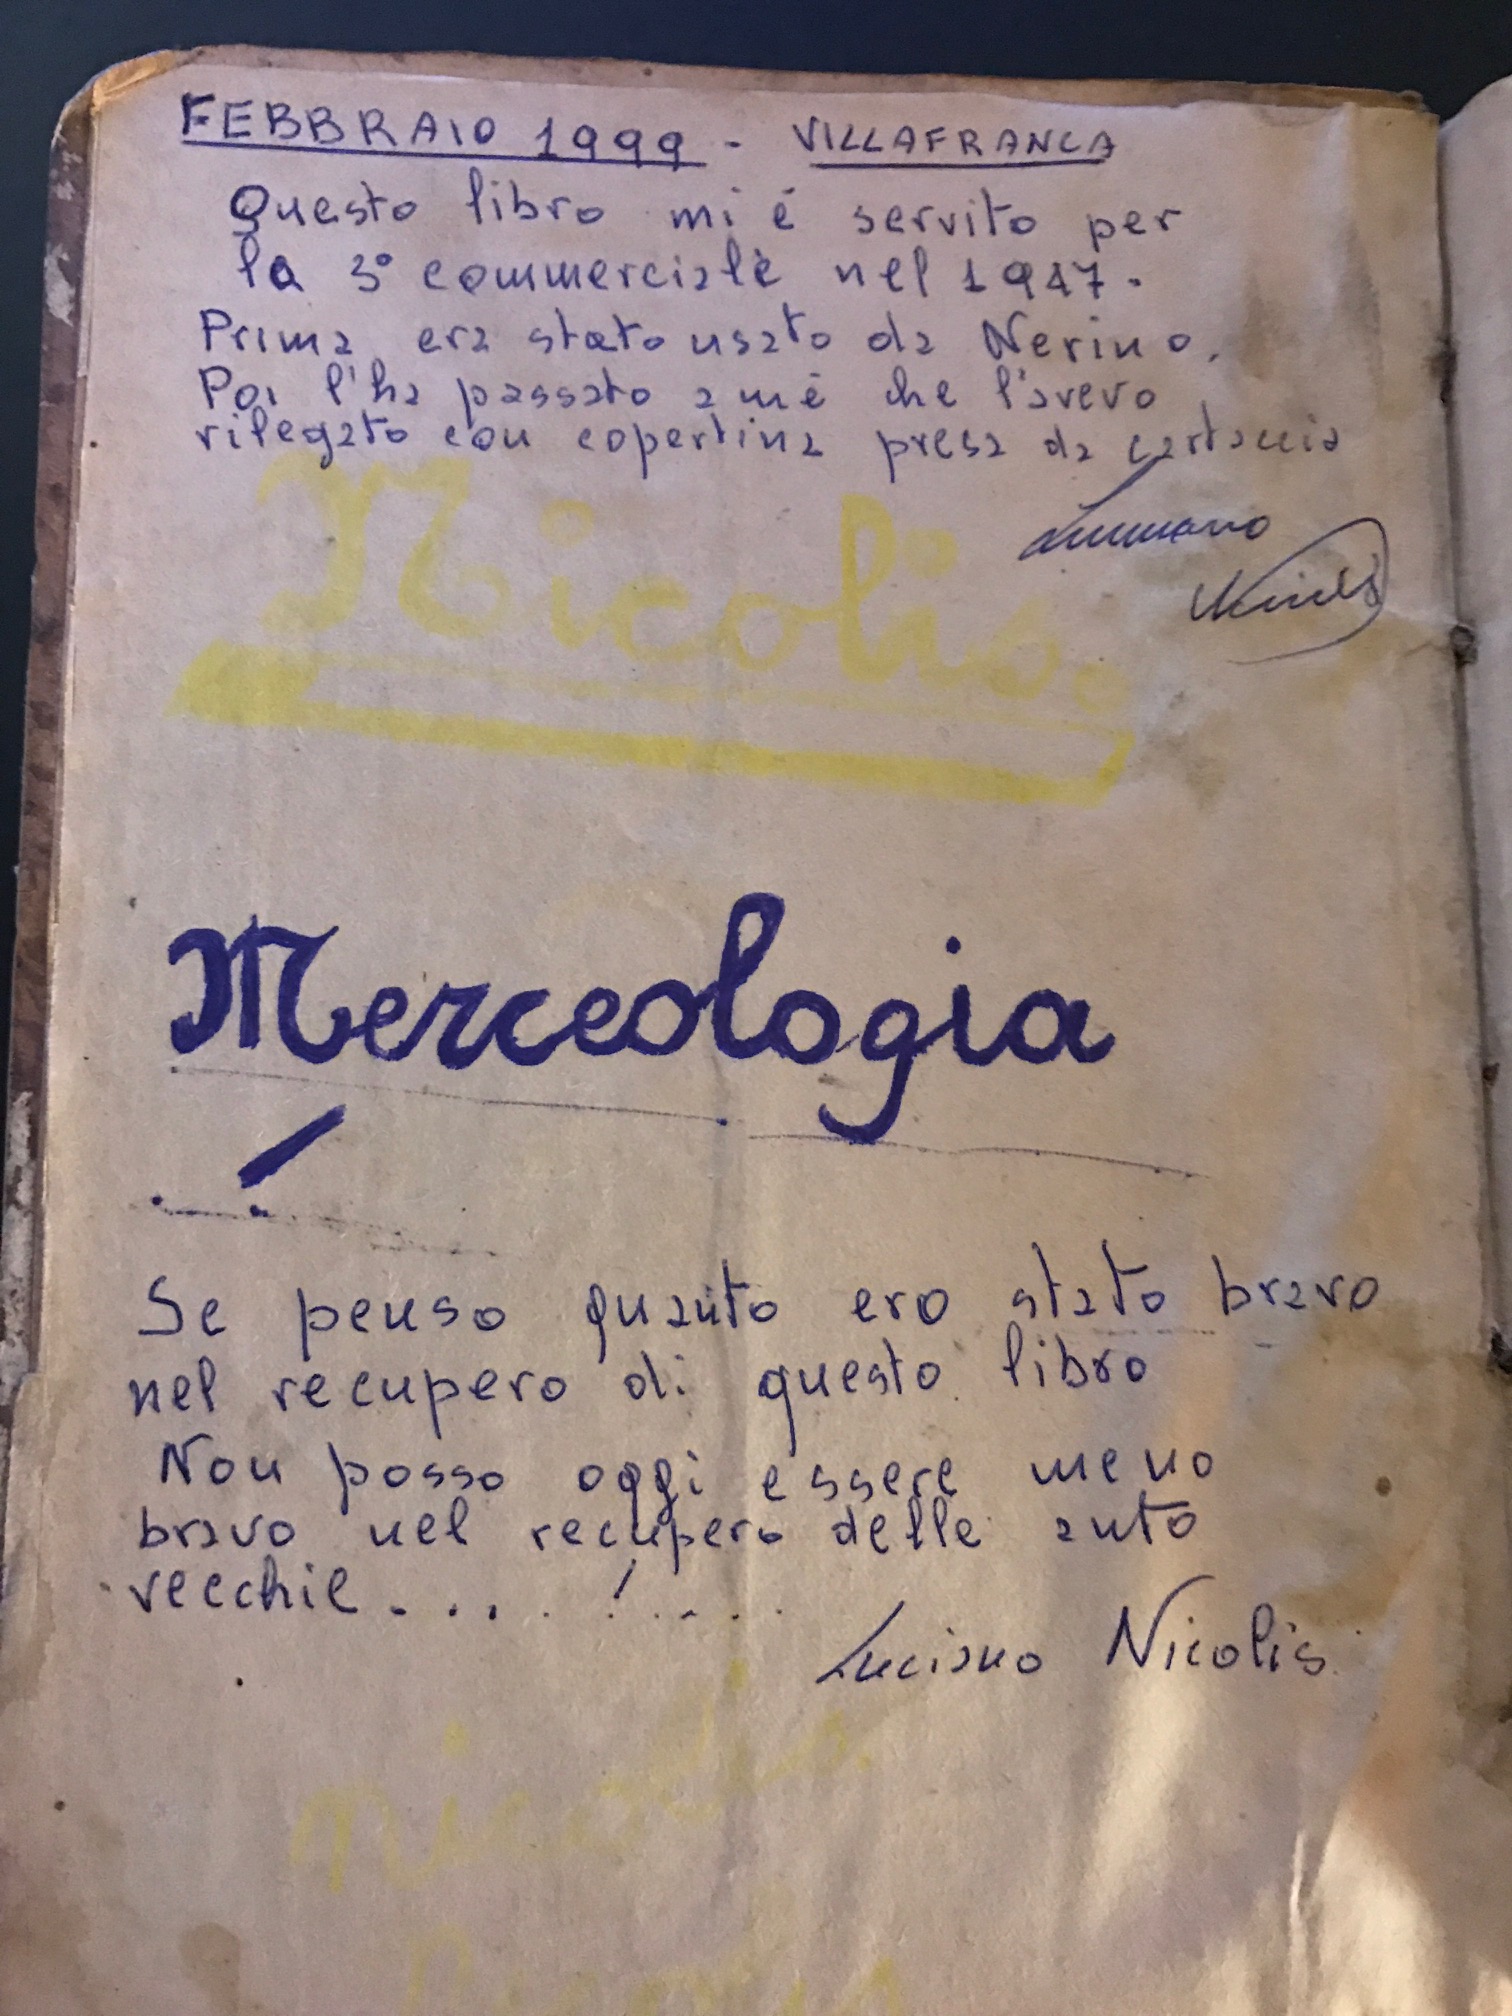 FEBBRAIO 1999 - VILLAFRANCA
Questo libro mi é servito per
la 3° commerciale nel 1947.
Prima era stato usato da Nerino.
Poi l'ha passato a me che l'avevo
rilegato con copertina presa da cartaccia
Luciano
Nicolis
Nicolis.
Merceologia
Se penso quanto ero stato bravo
nel recupero di questo libro
Non posso oggi essere meno
bravo nel recupero delle auto
vecchie.....!....
Luciano Nicolis
nicolis
Nicolis